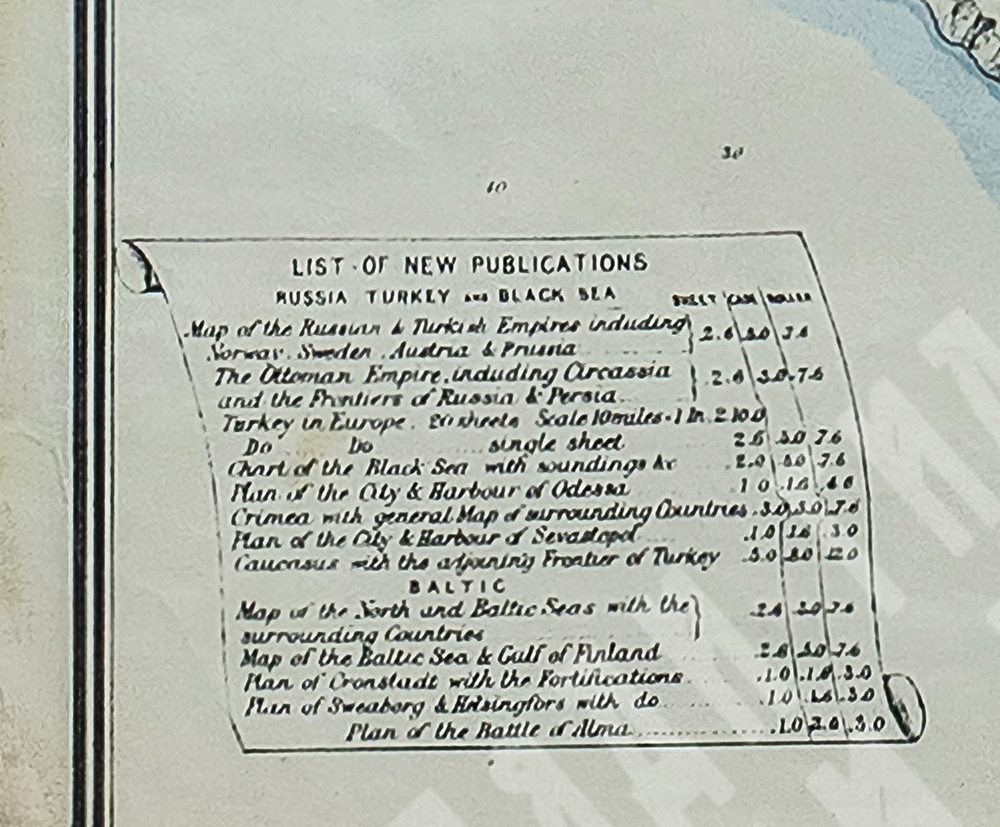 30
10
LIST OF NEW PUBLICATIONS
RUSSIA TURKEY AND BLACK SEA SHEET CASE ROLLER
Map of the Russian & Turkish Empires including
Norway. Sweden. Austria & Prussia 2.6 5.0 7.6
The Ottoman Empire, including Circassia
and the Frontiers of Russia & Persia 2.6 5.0 7.6
Turkey in Europe. 20 sheets Scale 10 miles = 1 In. 2.10.0
Do Do single sheet 2.6 5.0 7.6
Chart of the Black Sea with soundings &c 2.0 7.6
Plan of the City & Harbour of Odessa 1.0 1.6
Crimea with general Map of surrounding Countries 7.6
Plan of the City & Harbour of Sevastopol 1.0 1.6 3.0
Caucasus with the adjoining Frontier of Turkey 5.0 8.0 12.0
BALTIC
Map of the North and Baltic Seas with the
surrounding Countries 2.6 7.6
Map of the Baltic Sea & Gulf of Finland 2.6 5.0 7.6
Plan of Cronstadt with the Fortifications 1.0 1.6 3.0
Plan of Sweaborg & Helsingfors with do 1.0 1.6 3.0
Plan of the Battle of Alma 1.0 2.0 3.0